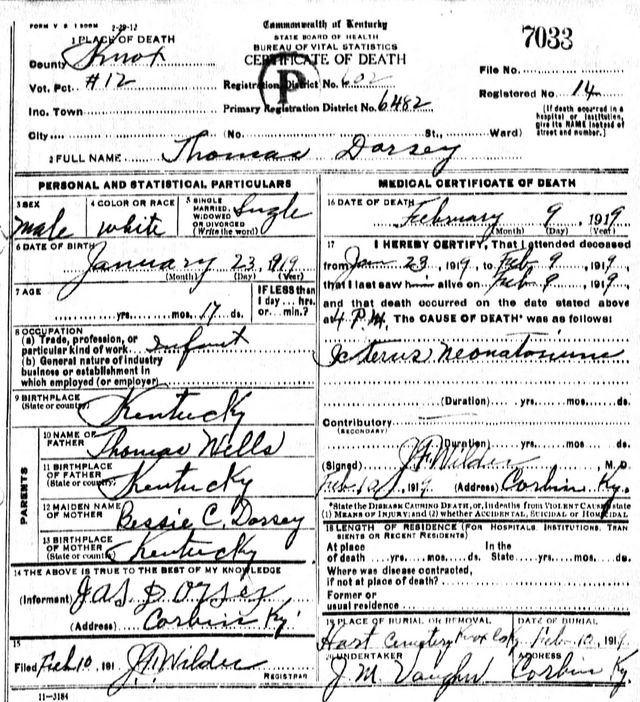 FORM V S 1 500M 2-28-12
Commonwealth of Kentucky
STATE BOARD OF HEALTH
BUREAU OF VITAL STATISTICS
CERTIFICATE OF DEATH
7033
1 PLACE OF DEATH
County Knox
Vot. Pct. #12
Inc. Town
City (No. St., Ward)
P
Registration District No. 602
Primary Registration District No. 6482
File No.
Registered No. 14
(If death occurred in a hospital or institution, give its NAME instead of street and number.)
2 FULL NAME Thomas Dorsey
PERSONAL AND STATISTICAL PARTICULARS
3 SEX male
4 COLOR OR RACE white
5 SINGLE MARRIED, WIDOWED OR DIVORCED (Write the word) Single
6 DATE OF BIRTH January 23, 1919
(Month) (Day) (Year)
7 AGE yrs. mos. 17 ds.
IF LESS than 1 day... hrs. or min.?
8 OCCUPATION
(a) Trade, profession, or particular kind of work Infant
(b) General nature of industry business or establishment in which employed (or employer)
9 BIRTHPLACE (State or country) Kentucky
PARENTS
10 NAME OF FATHER Thomas Wells
11 BIRTHPLACE OF FATHER (State or country) Kentucky
12 MAIDEN NAME OF MOTHER Bessie C. Dorsey
13 BIRTHPLACE OF MOTHER (State or country) Kentucky
14 THE ABOVE IS TRUE TO THE BEST OF MY KNOWLEDGE
(Informant) Jas Dorsey
(Address) Corbin Ky.
15
Filed Feb 10, 191 J.F. Wilder REGISTRAR
11-3184
MEDICAL CERTIFICATE OF DEATH
16 DATE OF DEATH
February 9, 1919
(Month) (Day) (Year)
17 I HEREBY CERTIFY, That I attended deceased
from Jan 23, 1919, to Feb 9, 1919,
that I last saw him alive on Feb 9, 1919,
and that death occurred on the date stated above
at 4 P.M. The CAUSE OF DEATH* was as follows:
Icterus Neonatorium
(Duration) yrs. mos. ds.
Contributory
(SECONDARY)
(Duration) yrs. mos. ds.
(Signed) J.F. Wilder, M. D.
Feb 10, 1919 (Address) Corbin Ky.
*State the DISEASE CAUSING DEATH, or, in deaths from VIOLENT CAUSES state
(1) MEANS OF INJURY; and (2) whether ACCIDENTAL, SUICIDAL or HOMICIDAL
18 LENGTH OF RESIDENCE (FOR HOSPITALS, INSTITUTIONS, TRANSIENTS OR RECENT RESIDENTS)
At place of death yrs. mos. ds. In the State yrs. mos. ds.
Where was disease contracted, if not at place of death?
Former or usual residence
19 PLACE OF BURIAL OR REMOVAL
Hart Cemetery Knox Co Ky
DATE OF BURIAL
Feb 10, 1919
20 UNDERTAKER
J. M. Vaughn
ADDRESS
Corbin Ky.